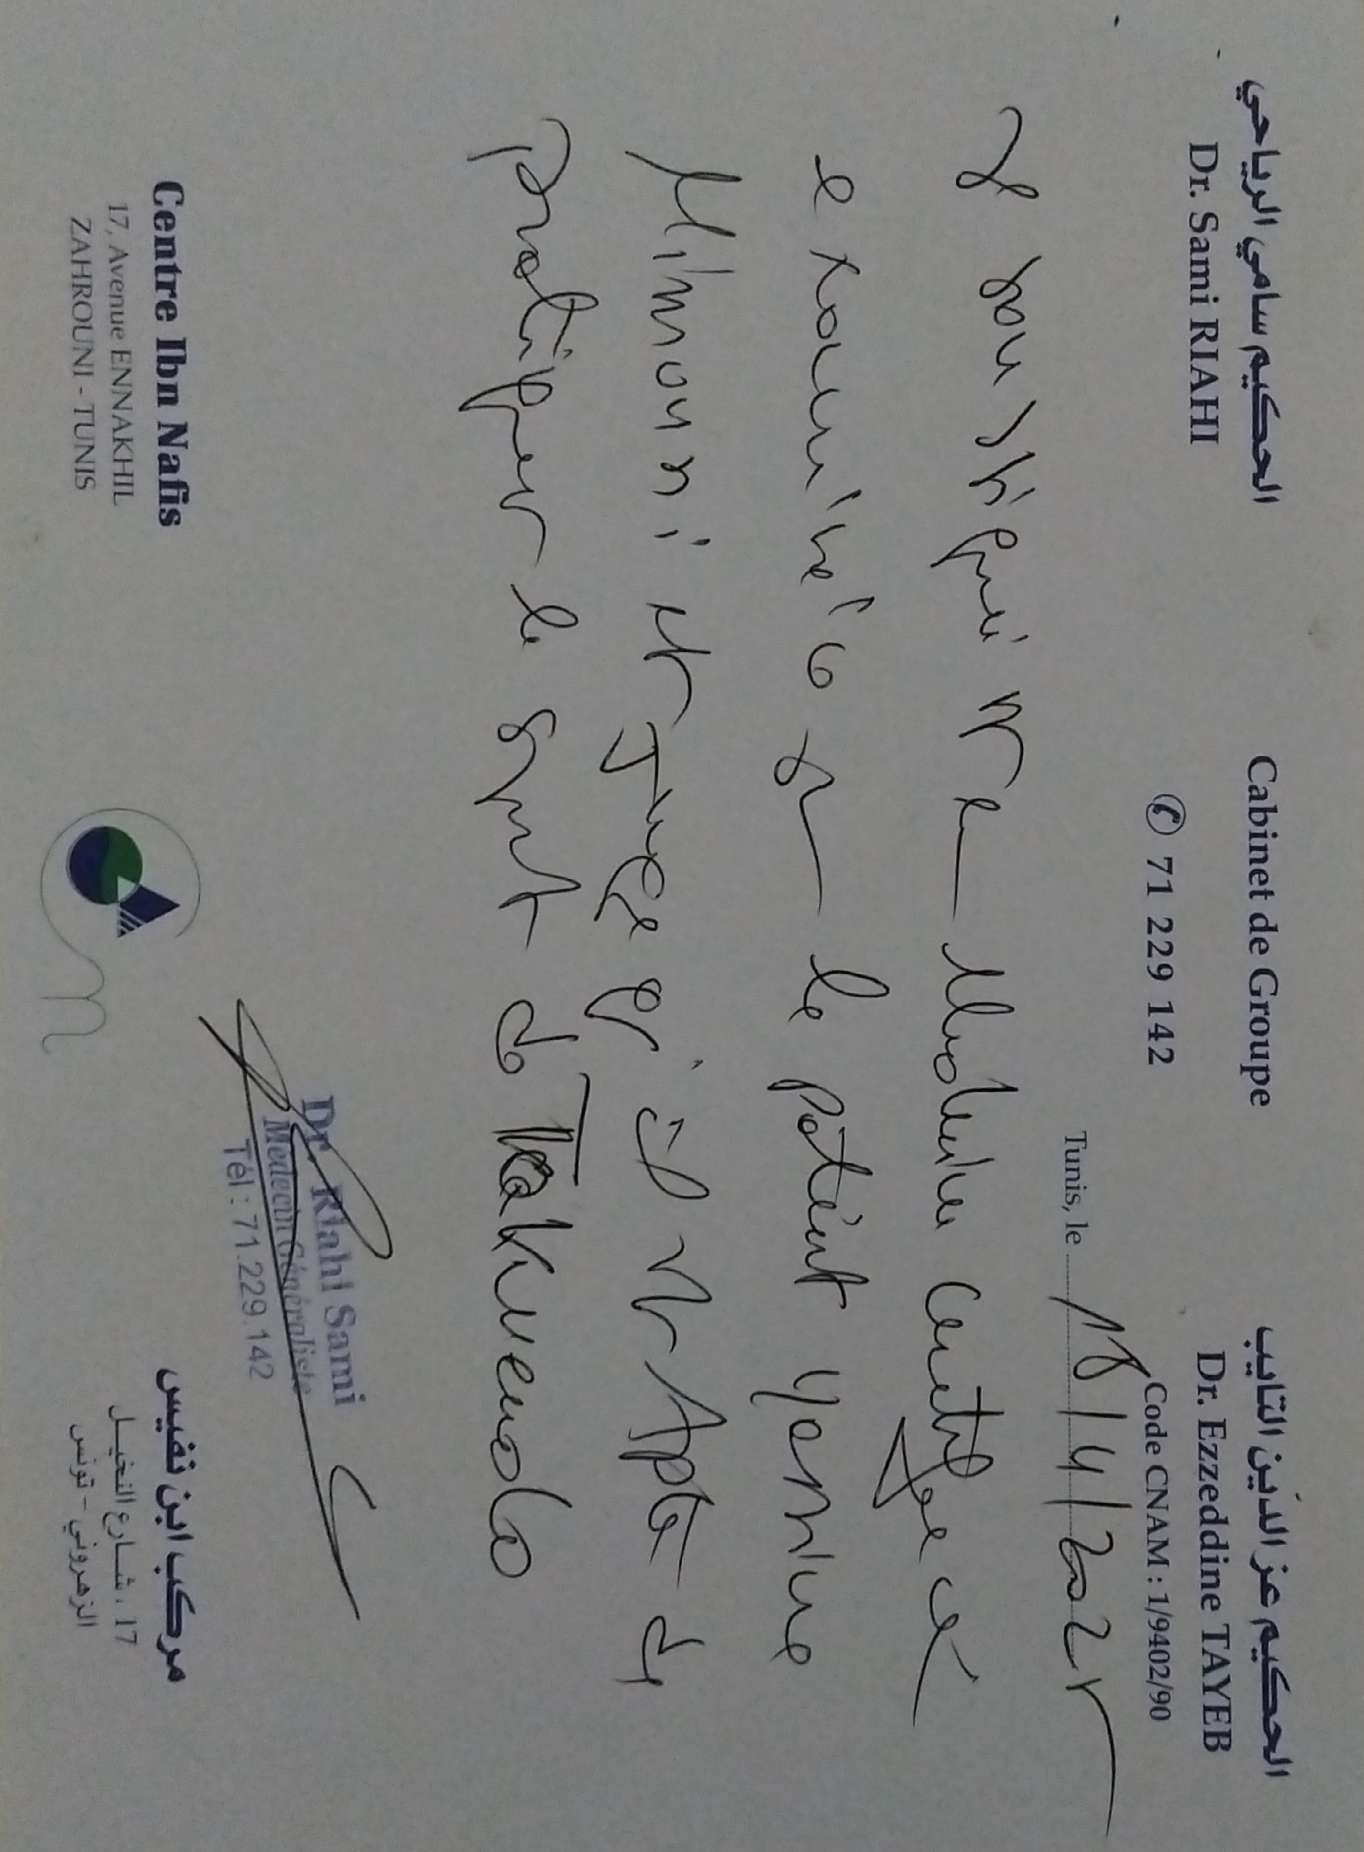 الحكيم سامي الرياحي
Dr. Sami RIAHI
Cabinet de Groupe
✆ 71 229 142
الحكيم عز الدّين التايب
Dr. Ezzeddine TAYEB
Code CNAM : 1/9402/90
Tunis, le 18/4/202
Je soussigné Me Moduler certifie
examiné ce le patient Yassine
Mimouni et juge qu'il est Apte de
pratiquer le sport de Taekwendo
Dr. Riahi Sami
Medecin Généraliste
Tél : 71.229.142
Centre Ibn Nafis
17, Avenue ENNAKHIL
ZAHROUNI - TUNIS
مركب ابن نفيس
17 ، شارع النخيل
الزهروني - تونس